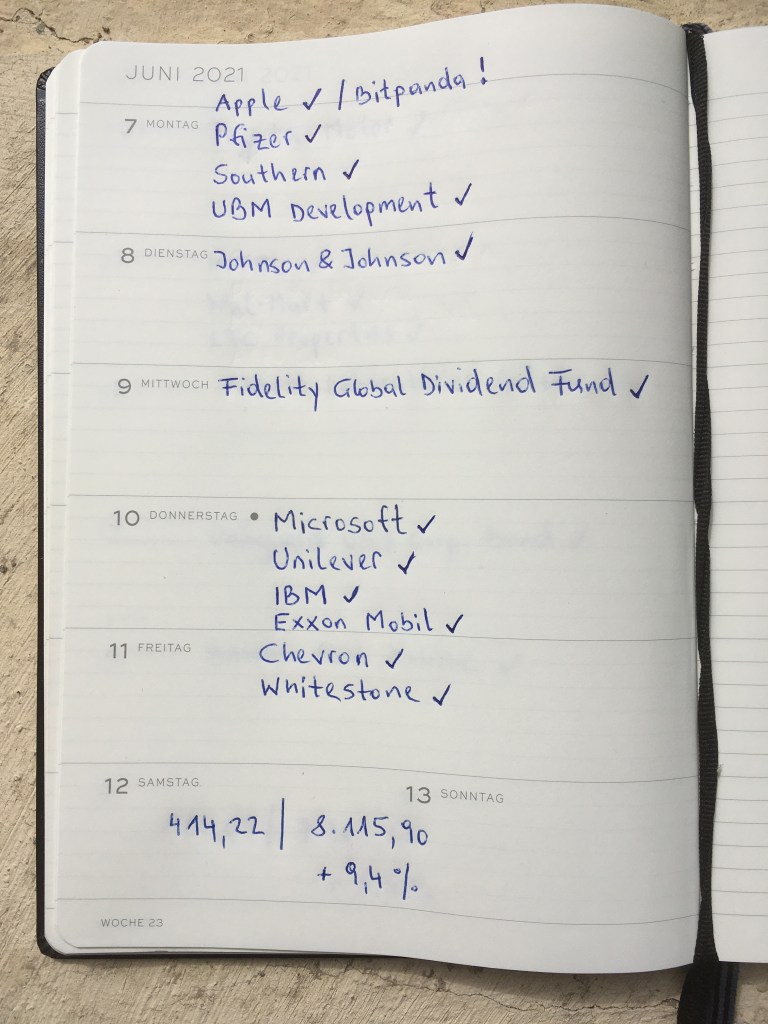 JUNI 2021
Apple ✓ / Bitpanda !
7 MONTAG
Pfizer ✓
Southern ✓
UBM Development ✓
8 DIENSTAG Johnson & Johnson ✓
9 MITTWOCH Fidelity Global Dividend Fund ✓
10 DONNERSTAG • Microsoft ✓
Unilever ✓
IBM ✓
Exxon Mobil ✓
11 FREITAG Chevron ✓
Whitestone ✓
12 SAMSTAG 13 SONNTAG
414,22 | 8.115,90
+ 9,4 %
WOCHE 23